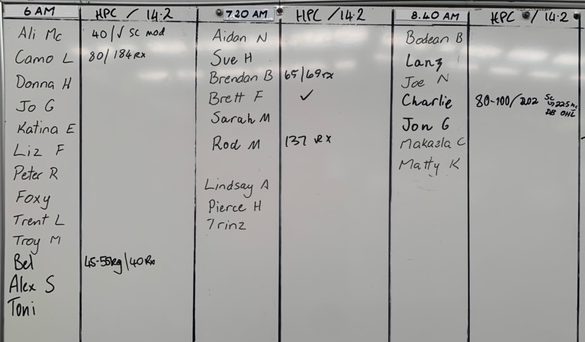 6 AM HPC / 14:2
Ali Mc 40/√ SC mod
Camo L 80/184 Rx
Donna H
Jo G
Katina E
Liz F
Peter R
Foxy
Trent L
Troy M
Bel 45-55kg/40 Rx
Alex S
Toni
7 20 AM HPC / 14:2
Aidan N
Sue H
Brendan B 65/69 rx
Brett F ✓
Sarah M
Rod M 137 RX
Lindsay A
Pierce H
Trinz
8.40 AM HPC / 14:2
Bodean B
Lanz
Joe N
Charlie 80-100/202 Sc
DB OHL
Jon G
Makaela C
Matty K